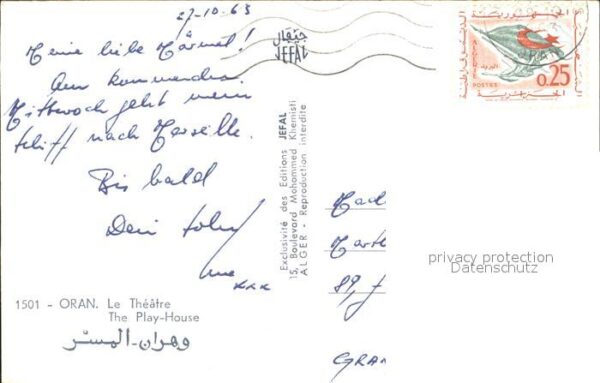 27-10-63
Meine liebe
Am kommenden
Mittwoch geht mein
Schiff nach Marseille.
Bis bald
Dein
xxx
1501 - ORAN. Le Théâtre
The Play-House
وهران - المسرّ
جيفال
JEFAL
Exclusivité des Editions JEFAL
15, Boulevard Mohammed Khemisti
ALGER - Reproduction interdite
POSTES
البريد
0.25
89,
GRAN
privacy protection
Datenschutz